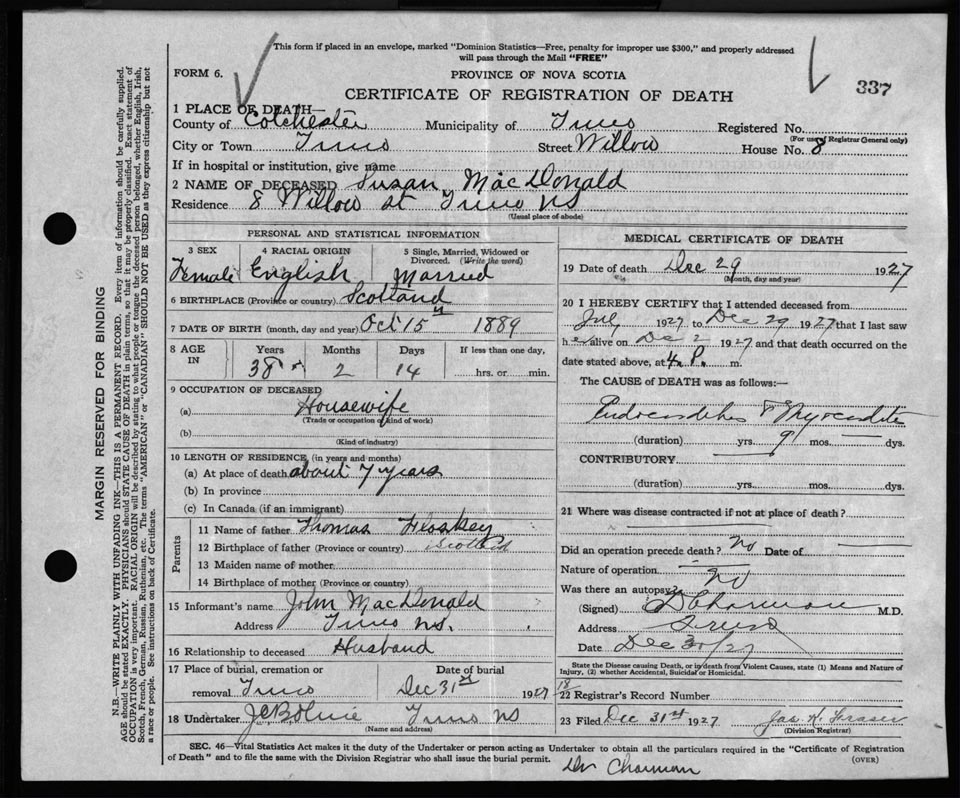 This form if placed in an envelope, marked "Dominion Statistics—Free, penalty for improper use $300," and properly addressed
will pass through the Mail "FREE"
FORM 6.
PROVINCE OF NOVA SCOTIA
337
CERTIFICATE OF REGISTRATION OF DEATH
1 PLACE OF DEATH—
County of Colchester Municipality of Truro Registered No.
(For use of Registrar General only)
City or Town Truro Street Willow House No. 8
If in hospital or institution, give name
2 NAME OF DECEASED Susan MacDonald
Residence 8 Willow st Truro NS
(Usual place of abode)
PERSONAL AND STATISTICAL INFORMATION
3 SEX 4 RACIAL ORIGIN 5 Single, Married, Widowed or
Divorced. (Write the word)
Female English Married
6 BIRTHPLACE (Province or country) Scotland
7 DATE OF BIRTH (month, day and year) Oct 15 1889
8 AGE IN Years Months Days If less than one day,
38 2 14 hrs. or min.
9 OCCUPATION OF DECEASED
(a) Housewife
(Trade or occupation or kind of work)
(b)
(Kind of industry)
10 LENGTH OF RESIDENCE (in years and months)
(a) At place of death about 7 years
(b) In province
(c) In Canada (if an immigrant)
Parents
11 Name of father Thomas
12 Birthplace of father (Province or country) Scotland
13 Maiden name of mother
14 Birthplace of mother (Province or country)
15 Informant's name John MacDonald
Address Truro NS.
16 Relationship to deceased Husband
17 Place of burial, cremation or Date of burial
removal Truro Dec 31st 1927
18 Undertaker Truro NS
(Name and address)
MEDICAL CERTIFICATE OF DEATH
19 Date of death Dec 29 1927
(Month, day and year)
20 I HEREBY CERTIFY that I attended deceased from
July 1927 to Dec 29 1927 that I last saw
h er alive on Dec 2 1927 and that death occurred on the
date stated above, at 4 P. m.
The CAUSE of DEATH was as follows:
(duration) yrs. 9 mos. dys.
CONTRIBUTORY
(duration) yrs. mos. dys.
21 Where was disease contracted if not at place of death?
Did an operation precede death? No Date of
Nature of operation
Was there an autopsy? No
(Signed) M.D.
Address Truro
Date Dec 30/27
State the Disease causing Death, or in death from Violent Causes, state (1) Means and Nature of
Injury, (2) whether Accidental, Suicidal or Homicidal.
18
22 Registrar's Record Number
23 Filed Dec 31st 1927 Jas. H. Fraser
(Division Registrar)
SEC. 46—Vital Statistics Act makes it the duty of the Undertaker or person acting as Undertaker to obtain all the particulars required in the "Certificate of Registration
of Death" and to file the same with the Division Registrar who shall issue the burial permit.
(OVER)
MARGIN RESERVED FOR BINDING
N.B.—WRITE PLAINLY WITH UNFADING INK—THIS IS A PERMANENT RECORD. Every item of information should be carefully supplied.
AGE should be stated EXACTLY. PHYSICIANS should STATE CAUSE OF DEATH in plain terms, so that it may be properly classified. Exact statement of
OCCUPATION is very important. RACIAL ORIGIN will be described by stating to what people or tongue the deceased person belonged, whether English, Irish,
Scotch, French, German, Russian, Ruthenian, etc. The terms "AMERICAN" or "CANADIAN" SHOULD NOT BE USED as they express citizenship but not
a race or people. See instructions on back of Certificate.